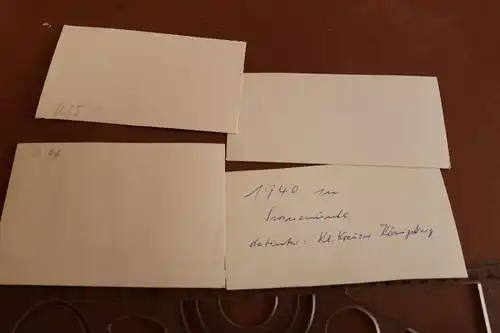 44
1940 in
Swinemünde
dahinter: Kl. Kreuzer Königsberg